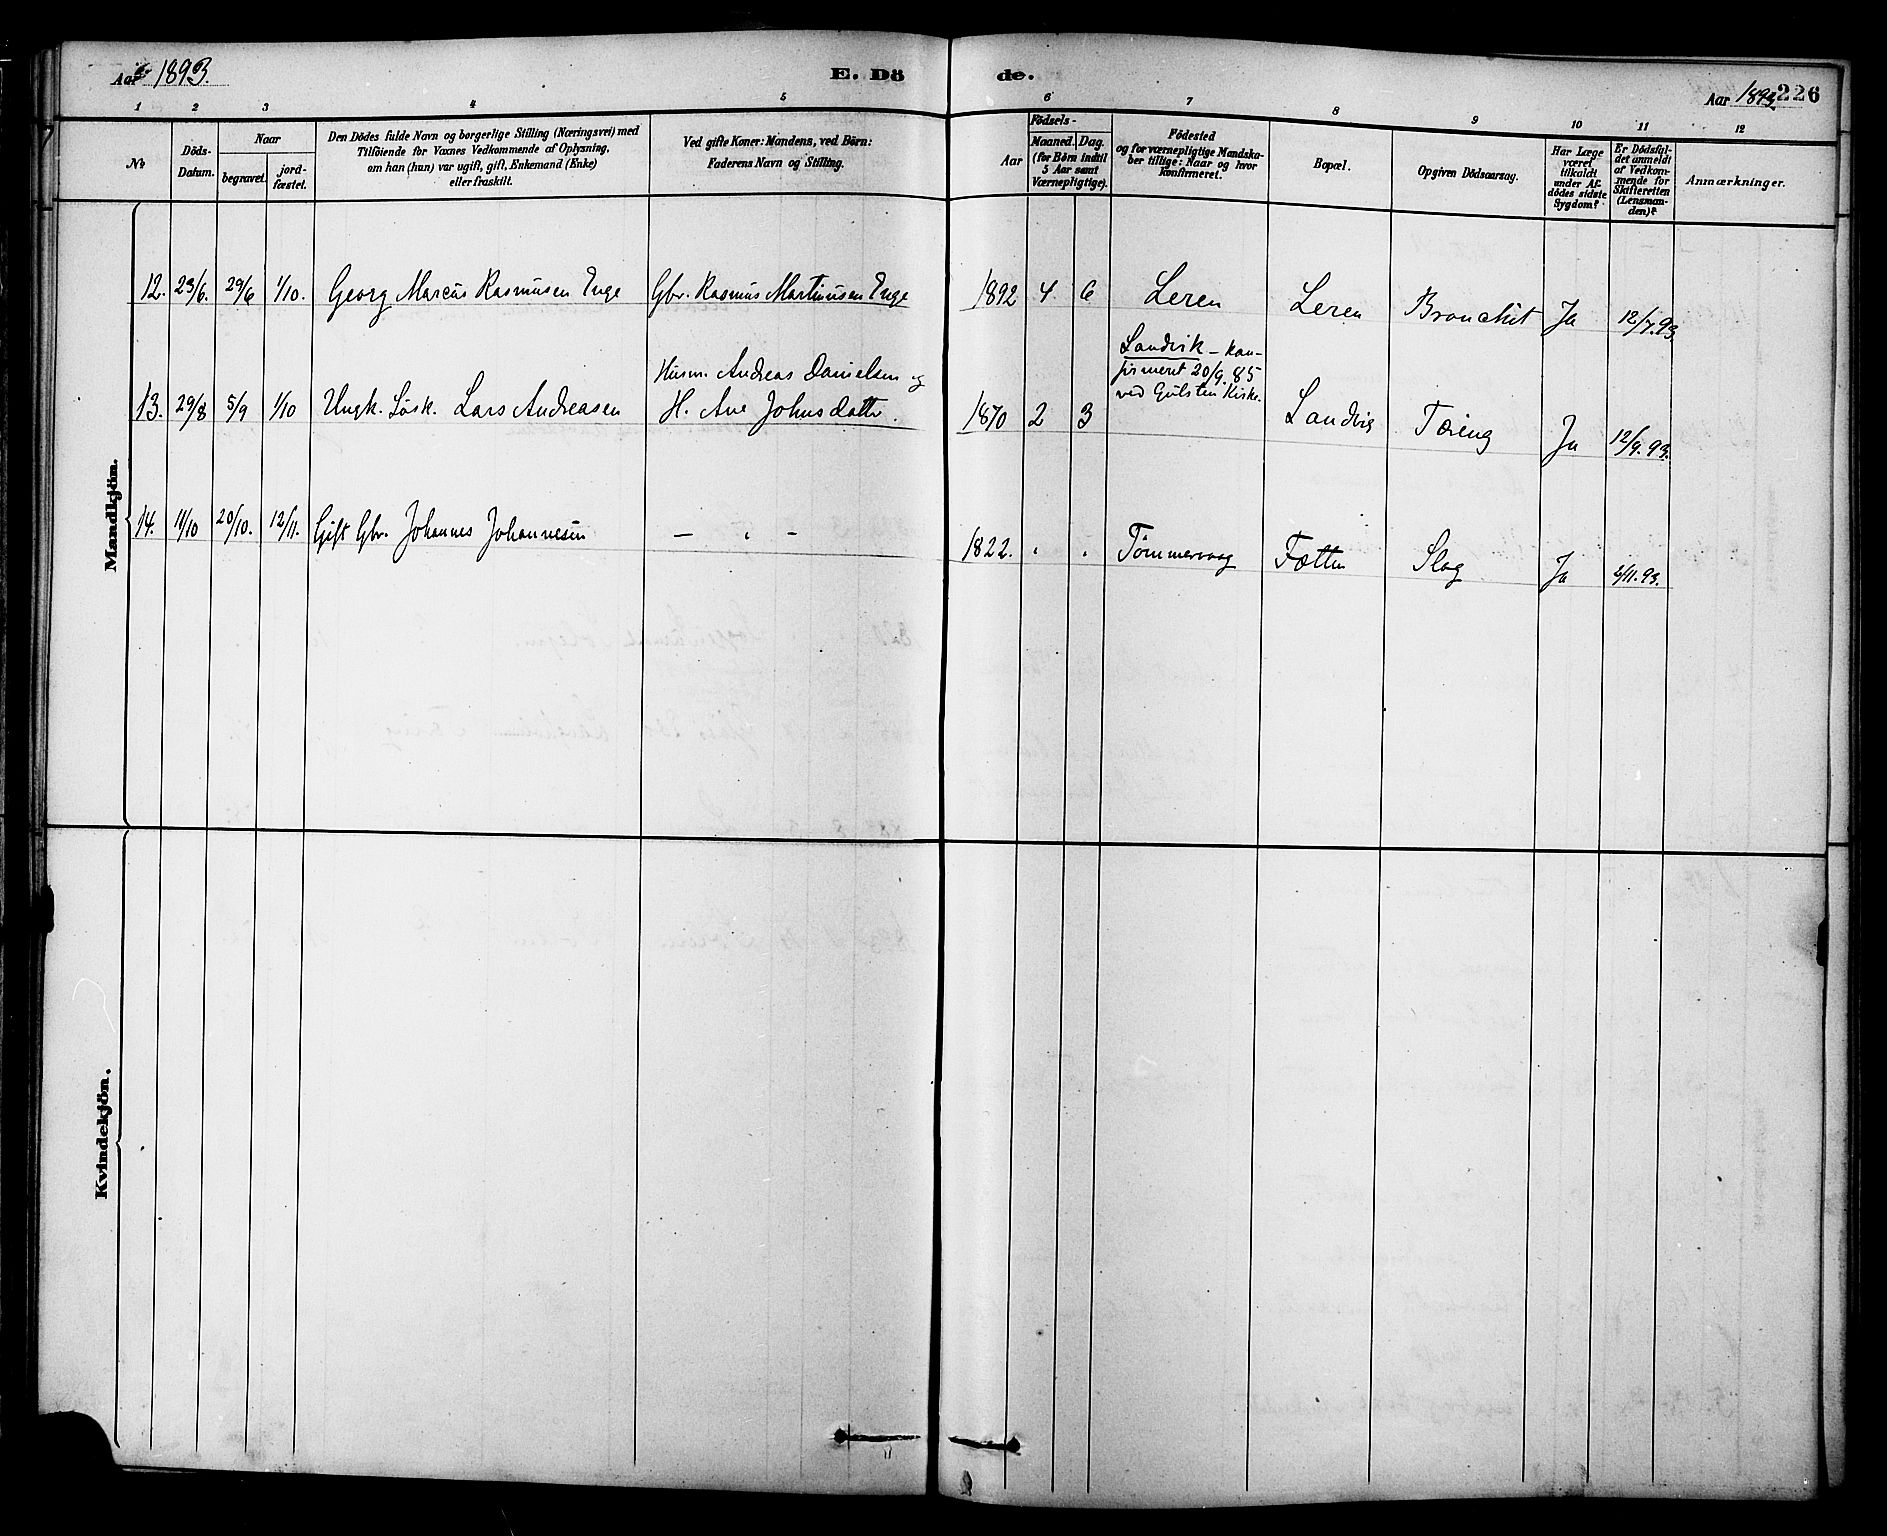 Aar 1893.
E. Dö
de.
Aar 1893.
226
1 2 3 4 5 6 7 8 9 10 11 12
No
Döds-
Datum.
Naar
begravet.
jord-
fæstet.
Den Dödes fulde Navn og borgerlige Stilling (Næringsvei) med
Tilföiende for Voxnes Vedkommende af Oplysning,
om han (hun) var ugift, gift, Enkemand (Enke)
eller fraskilt.
Ved gifte Koner: Mandens, ved Börn:
Faderens Navn og Stilling.
Födsels-
Aar
Maaned. Dag.
(for Börn indtil
5 Aar samt
Værnepligtige).
Födested
og for værnepligtige Mandska-
ber tillige: Naar og hvor
konfirmeret.
Bopæl.
Opgiven Dödsaarsag.
Har Læge
været
tilkaldt
under Af-
dödes sidste
Sygdom?
Er Dödsfal-
det anmeldt
af Vedkom-
mende for
Skifteretten
(Lensman-
den)?
Anmærkninger.
Mandkjön.
12. 23/6. 29/6 1/10. Georg Marcus Rasmusen Enge Gbr. Rasmus Martinusen Enge 1892 4. 6 Leren Leren Bronchit Ja 12/7.93.
Husm. Andreas Danielsen og
Landvik – kon-
firmeret 20/9.85
ved Gulsten Kirke.
13. 29/8 5/9 1/10 Ungk. Løsk. Lars Andreasen H. Ane Johnsdatter. 1870 2 3 Landvig Tæring Ja 12/9.93.
14. 11/10 20/10. 12/11. Gift Gbr. Johannes Johannesen – " – 1822. " " Tømmervaag Fætten Slag Ja /11.93.
Kvindekjön.